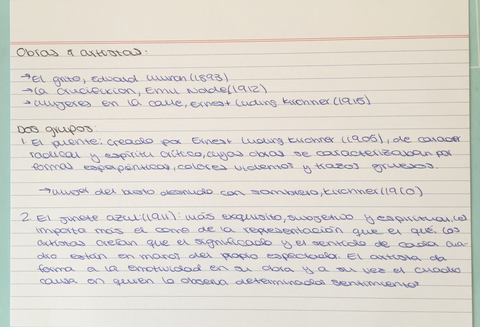 Obras y artistas:
→El grito, Edvard Munch (1893)
→La crucifixión, Emil Nolde (1912)
→Mujeres en la calle, Ernest Luding Kirchner (1915)
Dos grupos:
1. El puente: creado por Ernest Luding Kirchner (1905), de carácter
radical y espíritu crítico, cuyas obras se caracterizaban por
formas esperpénticas, colores violentos y trazos gruesos.
→Mujer del busto desnudo con sombrero, Kirchner (1910)
2. El jinete azul (1911): más exquisito, subjetivo y espiritual, les
importa más el como de la representación que el qué. Los
artistas creían que el significado y el sentido de cada cua-
dro están en manos del propio espectador. El artista da
forma a la emotividad en su obra y a su vez el cuadro
causa en quien la observa determinados sentimientos